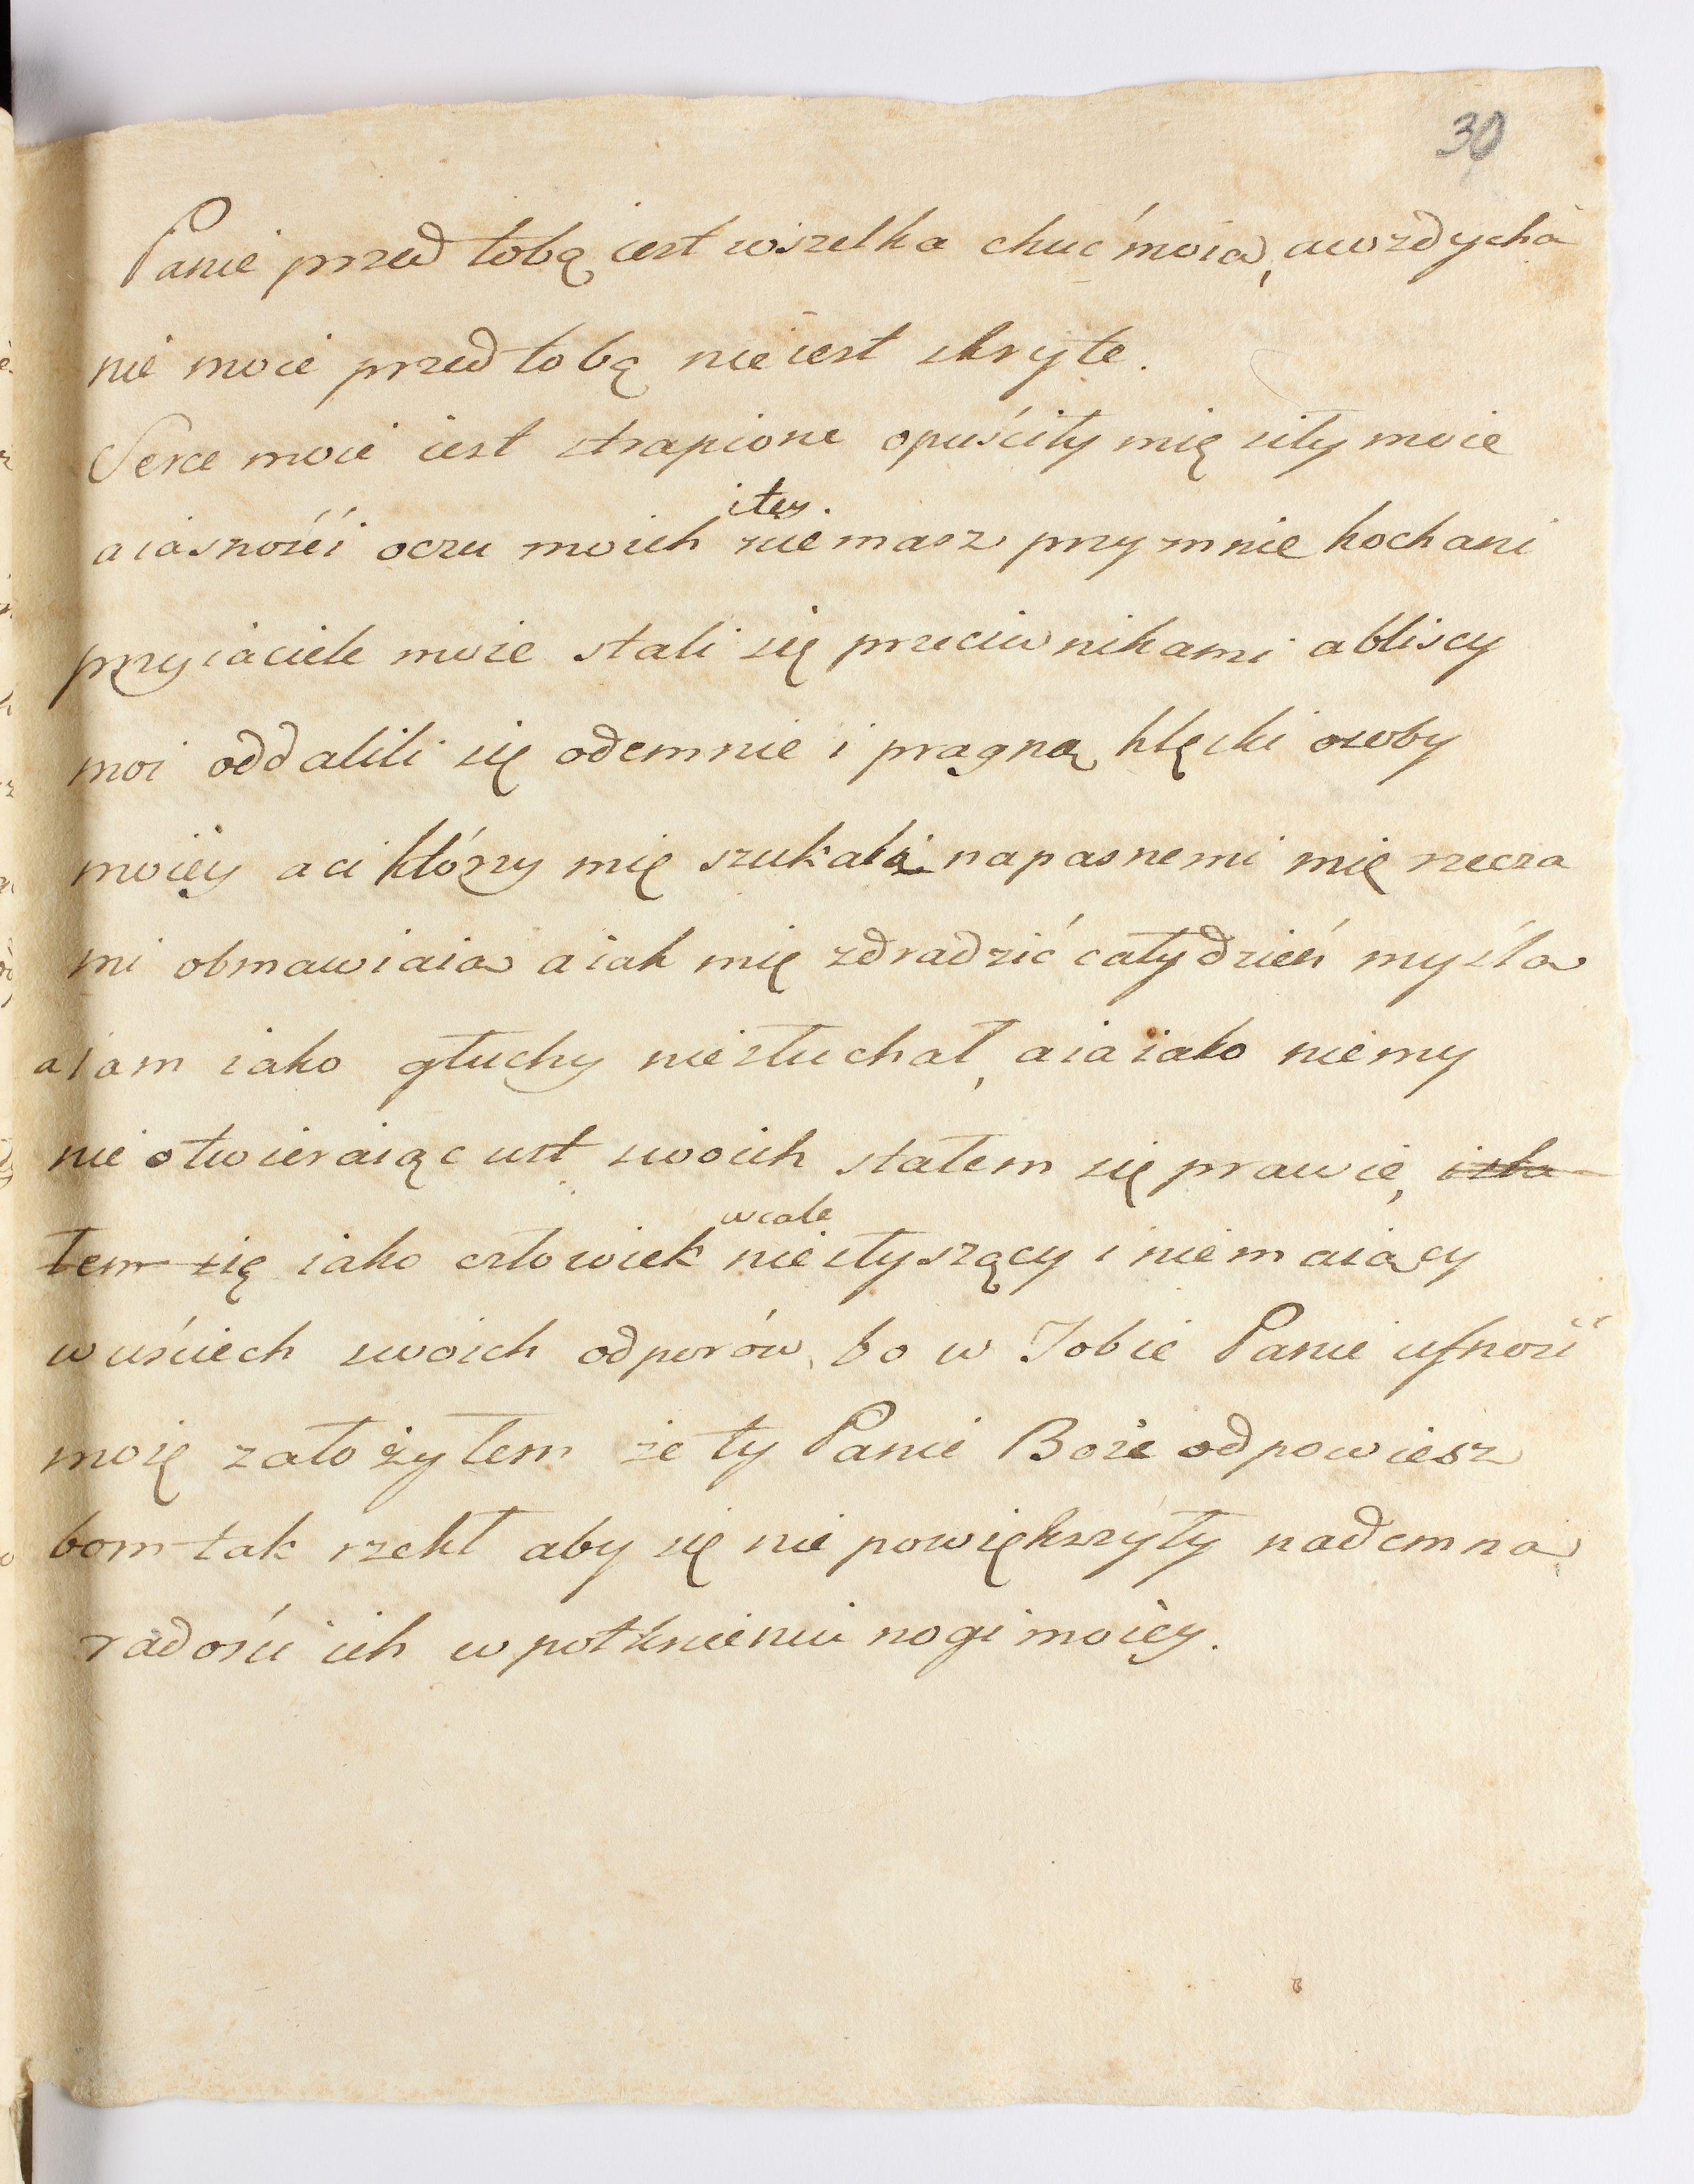 30
Panie przed tobą iest wszelka chuć moia, a wzdycha
nie moie przed tobą nie iest skryte.
Serce moie iest strapione opuściły mię siły moie
a iasności oczu moich niemasz przy mnie kochani
itey.
przyiaciele moie stali się przeciwnikami a bliscy
moi oddalili się odemnie i pragną klęski osoby
moiey a ci którzy mię szukali napasnemi mię rzecza
mi obmawiaią a iak mię zdradzić cały dzień myślą
a iam iako głuchy niesłuchał, a ia iako niemy
nie otwieraiąc ust swoich stałem się prawie, i sta
łem się iako człowiek niesłyszący i niemaiący
wcale
w uściech swoich odporów, bo w Tobie Panie ufność
moię założyłem że ty Panie Boże odpowiesz
bom tak rzekł aby się nie powiększyły nademną
radości ich w potknieniu nogi moiey.